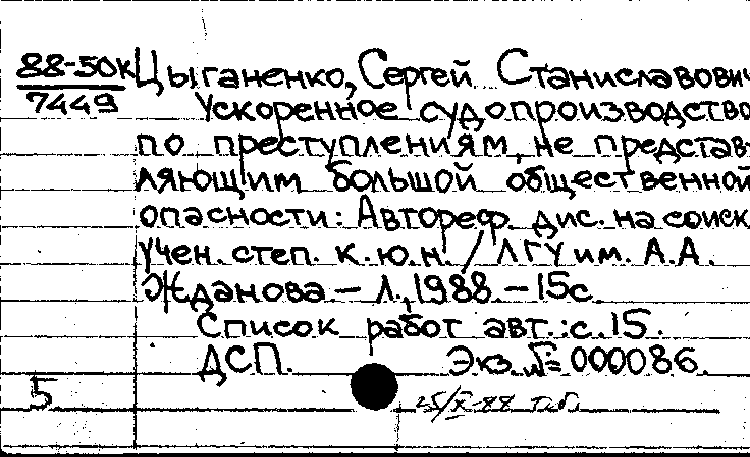 88-50к Цыганенко, Сергей Станиславович
7449 Ускоренное судопроизводство
по преступлениям, не представ-
ляющим большой общественной
опасности: Автореф. дис. на соиск.
учен. степ. к.ю.н. / ЛГУ им. А.А.
Жданова. – Л., 1988. – 15с.
Список работ авт.: с. 15.
ДСП. Экз. № 000086.
5
25/X-88